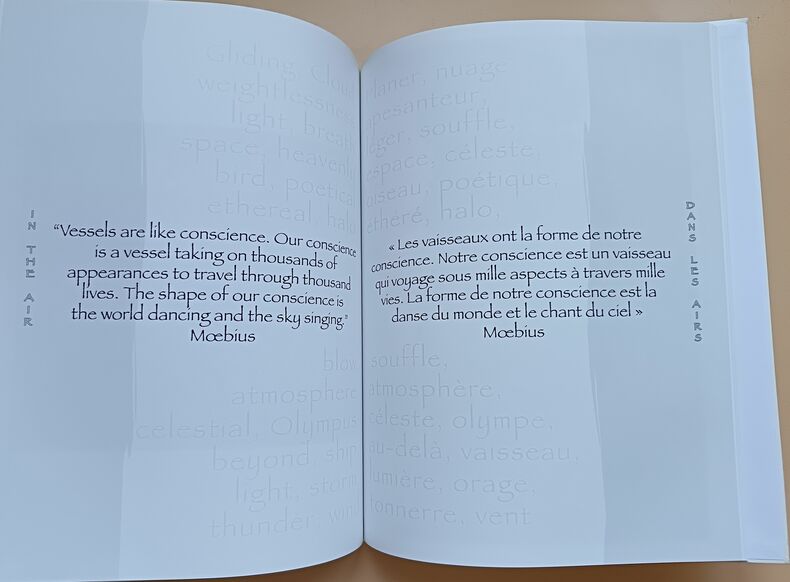 IN THE AIR
Gliding, Cloud
weightlessness
light, breath
space, heavenly
bird, poetical
ethereal, halo
"Vessels are like conscience. Our conscience
is a vessel taking on thousands of
appearances to travel through thousand
lives. The shape of our conscience is
the world dancing and the sky singing."
Mœbius
blow
atmosphere
celestial, Olympus
beyond, ship
light, storm
thunder, wind
planer, nuage
apesanteur,
léger, souffle,
espace, céleste,
oiseau, poétique,
éthéré, halo,
« Les vaisseaux ont la forme de notre
conscience. Notre conscience est un vaisseau
qui voyage sous mille aspects à travers mille
vies. La forme de notre conscience est la
danse du monde et le chant du ciel »
Mœbius
souffle,
atmosphère,
céleste, olympe,
au-delà, vaisseau,
lumière, orage,
tonnerre, vent
DANS LES AIRS